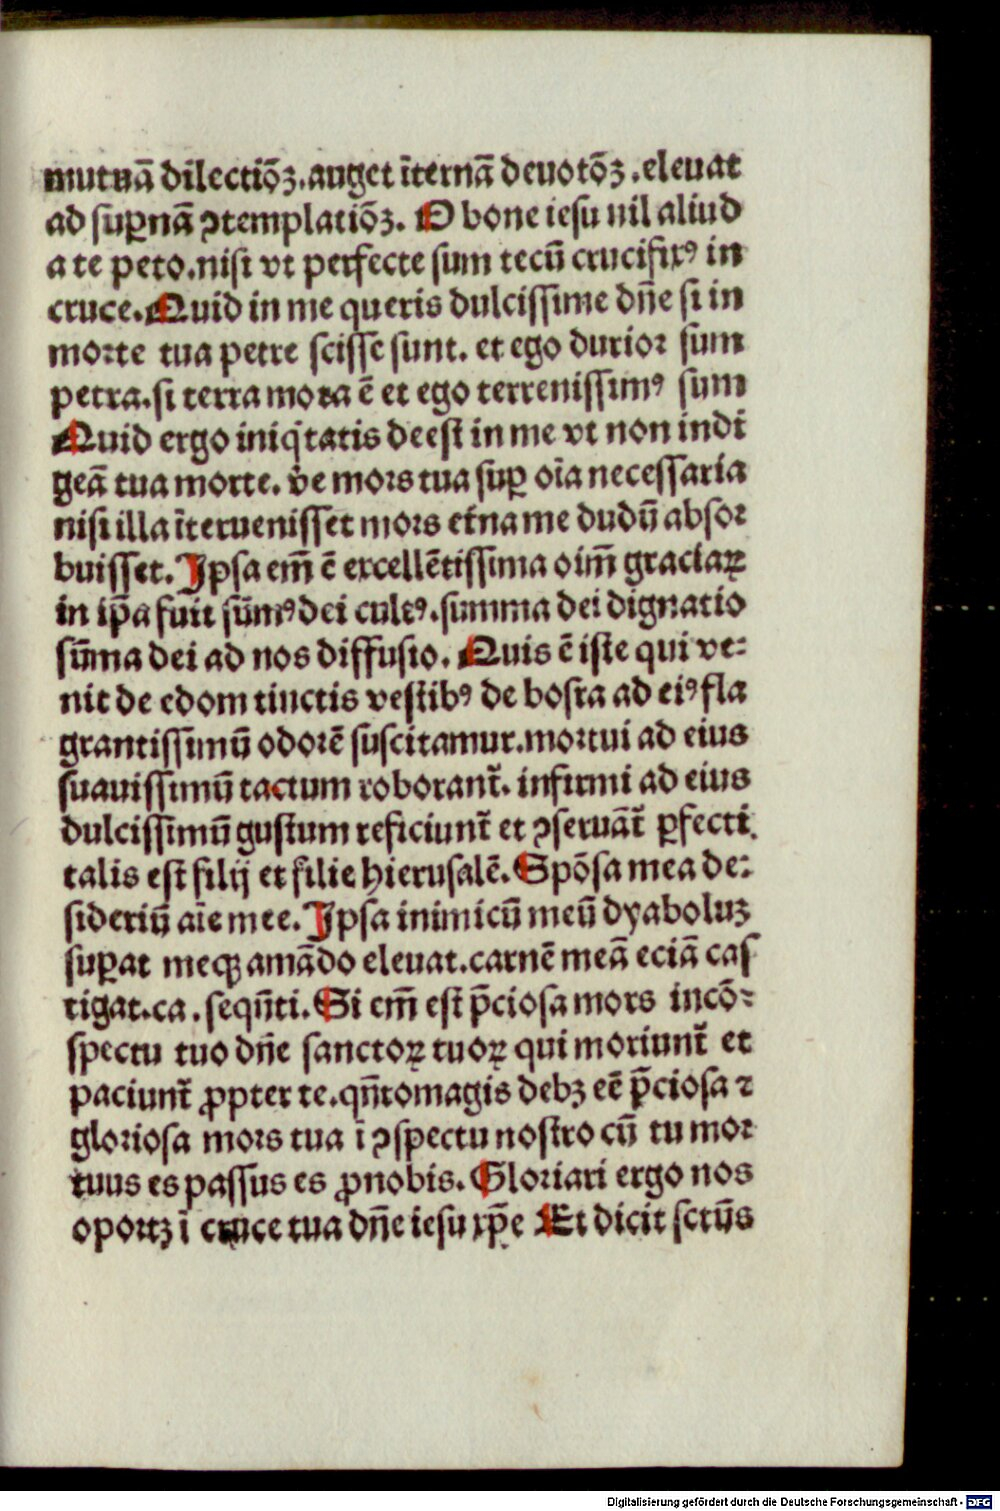 mutuā dilectiōꝫ.auget īternā deuotōꝫ.eleuat
ad suꝑnā ꝯtemplatiōꝫ. O bone iesu nil aliud
a te peto.nisi vt perfecte sum tecū crucifixꝰ in
cruce. Quid in me queris dulcissime dn̄e si in
morte tua petre scisse sunt. et ego durior sum
petra.si terra mota ē et ego terrenissimꝰ sum
Quid ergo iniqͥtatis deest in me vt non indi
geā tua morte. v̄e mors tua suꝑ oīa necessaria
nisi illa īteruenisset mors etna me dudū absor
buisset. Ipsa em̄ ē excellētissima oim̄ graciaꝝ
in ip̄a fuit sūmꝰ dei cultꝰ.summa dei dignatio
sūma dei ad nos diffusio. Quis ē iste qui ve⸗
nit de edom tinctis vestibꝰ de bosra ad eiꝰ fla
grantissimū odorē suscitamur.mortui ad eius
suauissimū tactum roborant̄. infirmi ad eius
dulcissimū gustum reficiunt̄ et ꝯseruāt̄ ꝑfecti.
talis est filij et filie hierusalē. Spōsa mea de⸗
sideriū aīe mee. Ipsa inimicū meū dyaboluꝫ
suꝑat meqꝫ amādo eleuat.carnē meā eciā cas
tigat.ca. seqn̄ti. Si em̄ est p̄ciosa mors incō⸗
spectu tuo dn̄e sanctoꝝ tuoꝝ qui moriunt̄ et
paciunt̄ ꝓpter te.qn̄tomagis debꝫ eē p̄ciosa ⁊
gloriosa mors tua ī ꝯspectu nostro cū tu mor
tuus es passus es ꝓnobis. Gloriari ergo nos
oportꝫ ī cruce tua dn̄e iesu xp̄e Et dicit sctūs
Digitalisierung gefördert durch die Deutsche Forschungsgemeinschaft - DFG